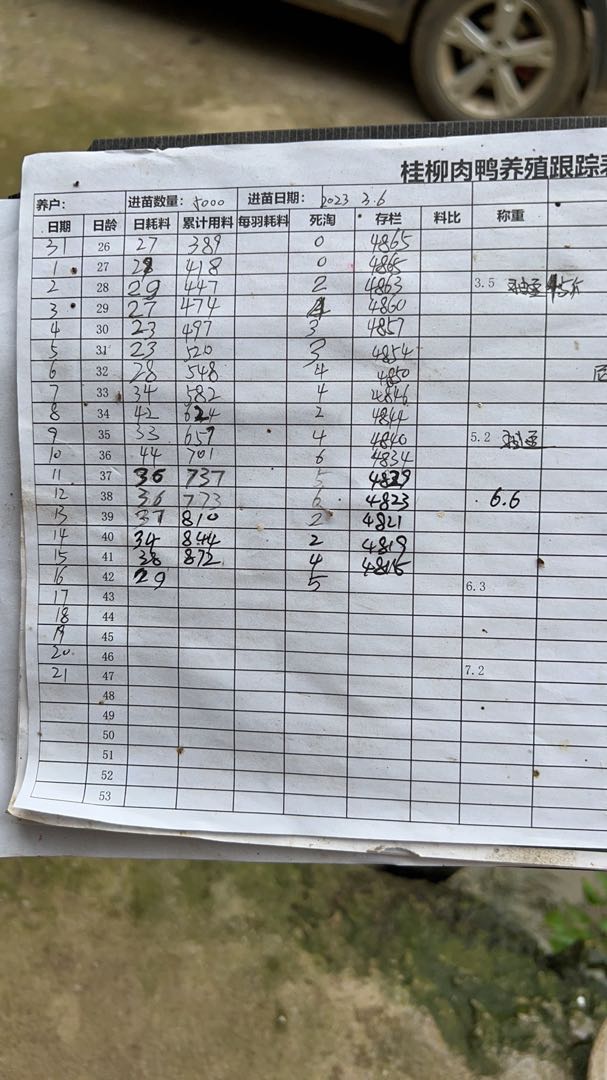 桂柳肉鸭养殖跟踪表
养户: 进苗数量: 5000 进苗日期: 2023 3.6
日期 日龄 日耗料 累计用料 每羽耗料 死淘 存栏 料比 称重
31 26 27 389 0 4865
1 27 28 418 0 4865
2 28 29 447 2 4863 3.5
3 29 27 474 4860
4 30 23 497 3 4857
5 31 23 520 3 4854
6 32 28 548 4 4850
7 33 34 582 4 4846
8 34 42 624 2 4844
9 35 33 657 4 4840 5.2
10 36 44 701 6 4834
11 37 36 737 5 4829
12 38 36 773 6 4823 6.6
13 39 37 810 2 4821
14 40 34 844 2 4819
15 41 38 872 4 4815
16 42 29 5 6.3
17 43
18 44
19 45
20 46
21 47 7.2
48
49
50
51
52
53